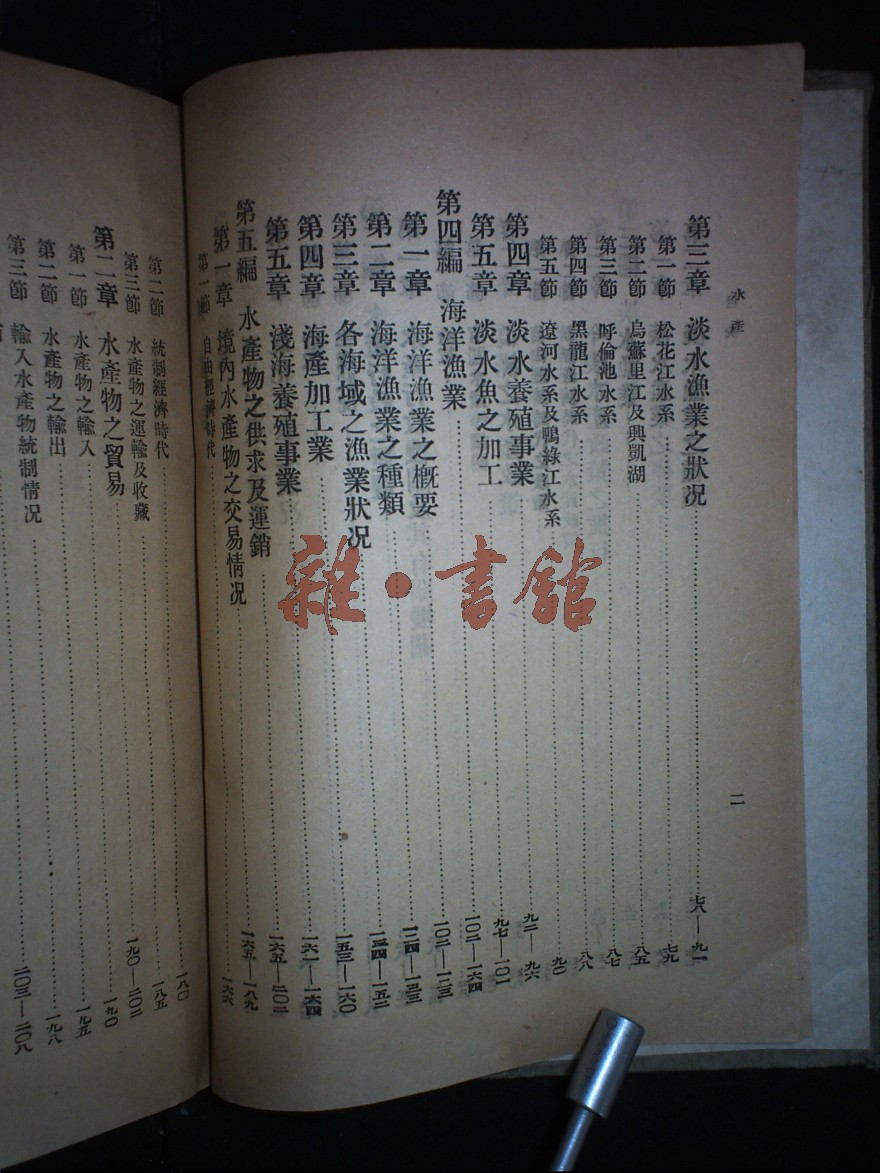 水產
二
第三章 淡水漁業之狀况 七八—九一
第一節 松花江水系 七九
第二節 烏蘇里江及興凱湖 八五
第三節 呼倫池水系 八七
第四節 黑龍江水系 八八
第五節 遼河水系及鴨綠江水系 九〇
第四章 淡水養殖事業 九二—九六
第五章 淡水魚之加工 九七—一〇一
第四編 海洋漁業 一〇二—一六四
第一章 海洋漁業之槪要 一〇二—一二三
第二章 海洋漁業之種類 一二四—一三三
第三章 各海域之漁業狀况 一三四—一五二
第四章 海產加工業 一五三—一六〇
第五章 淺海養殖事業 一六一—一六四
第五編 水產物之供求及運銷 一六五—二〇二
第一章 境內水產物之交易情况 一六五—一八九
第一節 自由經濟時代 一六六
第二節 統制經濟時代 一八〇
第三節 水產物之運輸及收藏 一八五
第二章 水產物之貿易 一九〇—二〇二
第一節 水產物之輸入 一九〇
第二節 水產物之輸出 一九五
第三節 輸入水產物統制情况 一九八
二〇三—二〇八
雜·書館